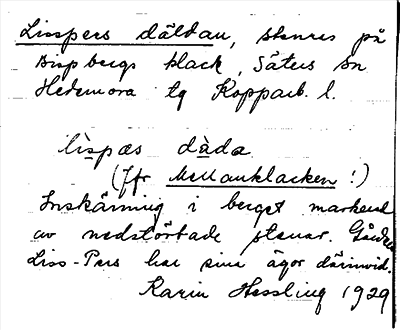 Lisspers däldan, stenrös på
Bispbergs klack, Säters sn
Hedemora tg Kopparb. l.
lìspæs dàda
(Jfr Mellanklacken!)
Inskärning i berget markerad
av nedstörtade stenar. Gården
Liss-Pers har sina ägor därinvid.
Karin Hessling 1929